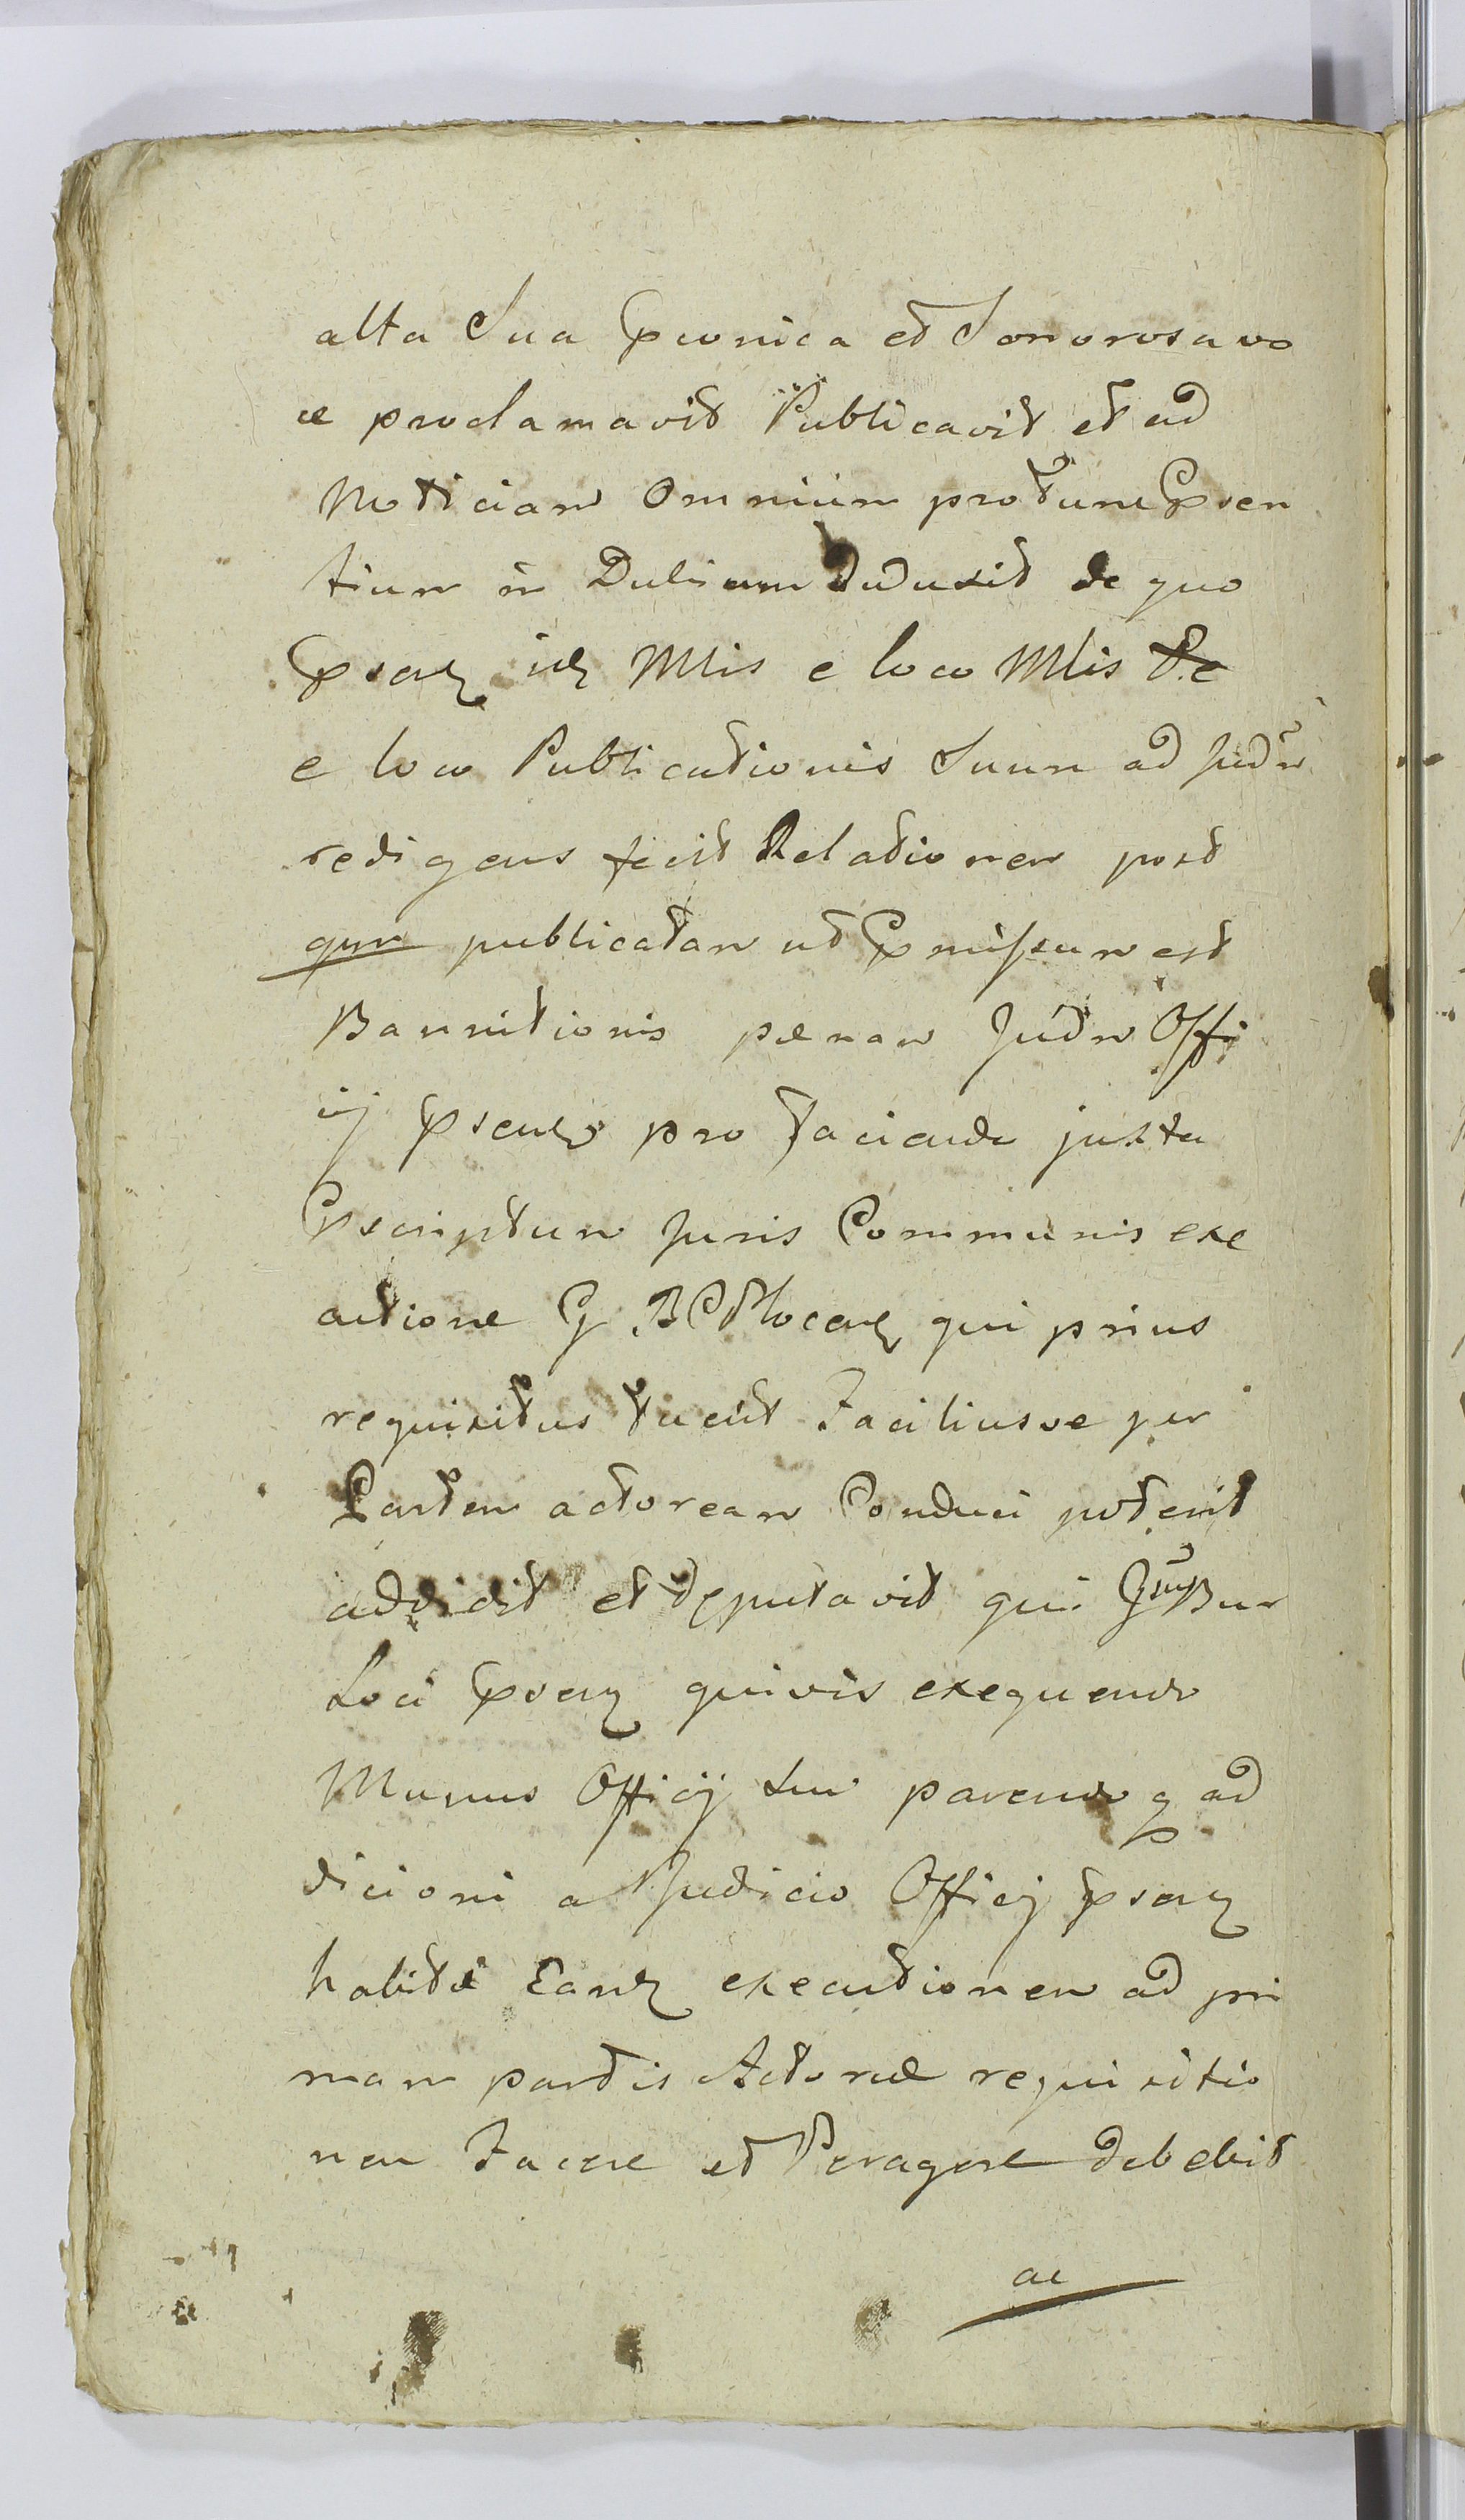 alta Sua Ppconica et Sonorosa vo
ce proclamavit Publicavit et ad
Noticiam Omnium protunc Ppsen
tium in Dubium deduxit de quo
Ppsens idz Mlis e loco Mlis
e loco Publicationis Suum ad Judm
redigens fecit Relationem post
qm publicatam ut Ppmissum est
Bannitionis pænam Judm Offi
cij Ppsens pro facienda juxta
Ppscriptum Juris Communis exe
cutione G. B Cthocens qui prius
requisitus fuerit Faciliusve per
Partem actoream Conduci poterit
addidit et deputavit qui
Loci Ppsens quivis exequendo
Munus Officij sui parendoq ad
dicioni a Judicio Officij Ppsens
habitæ Eandz executionem ad pri
mam partis Actoreæ requisitio
nem Facere et Peragere debebit
ac